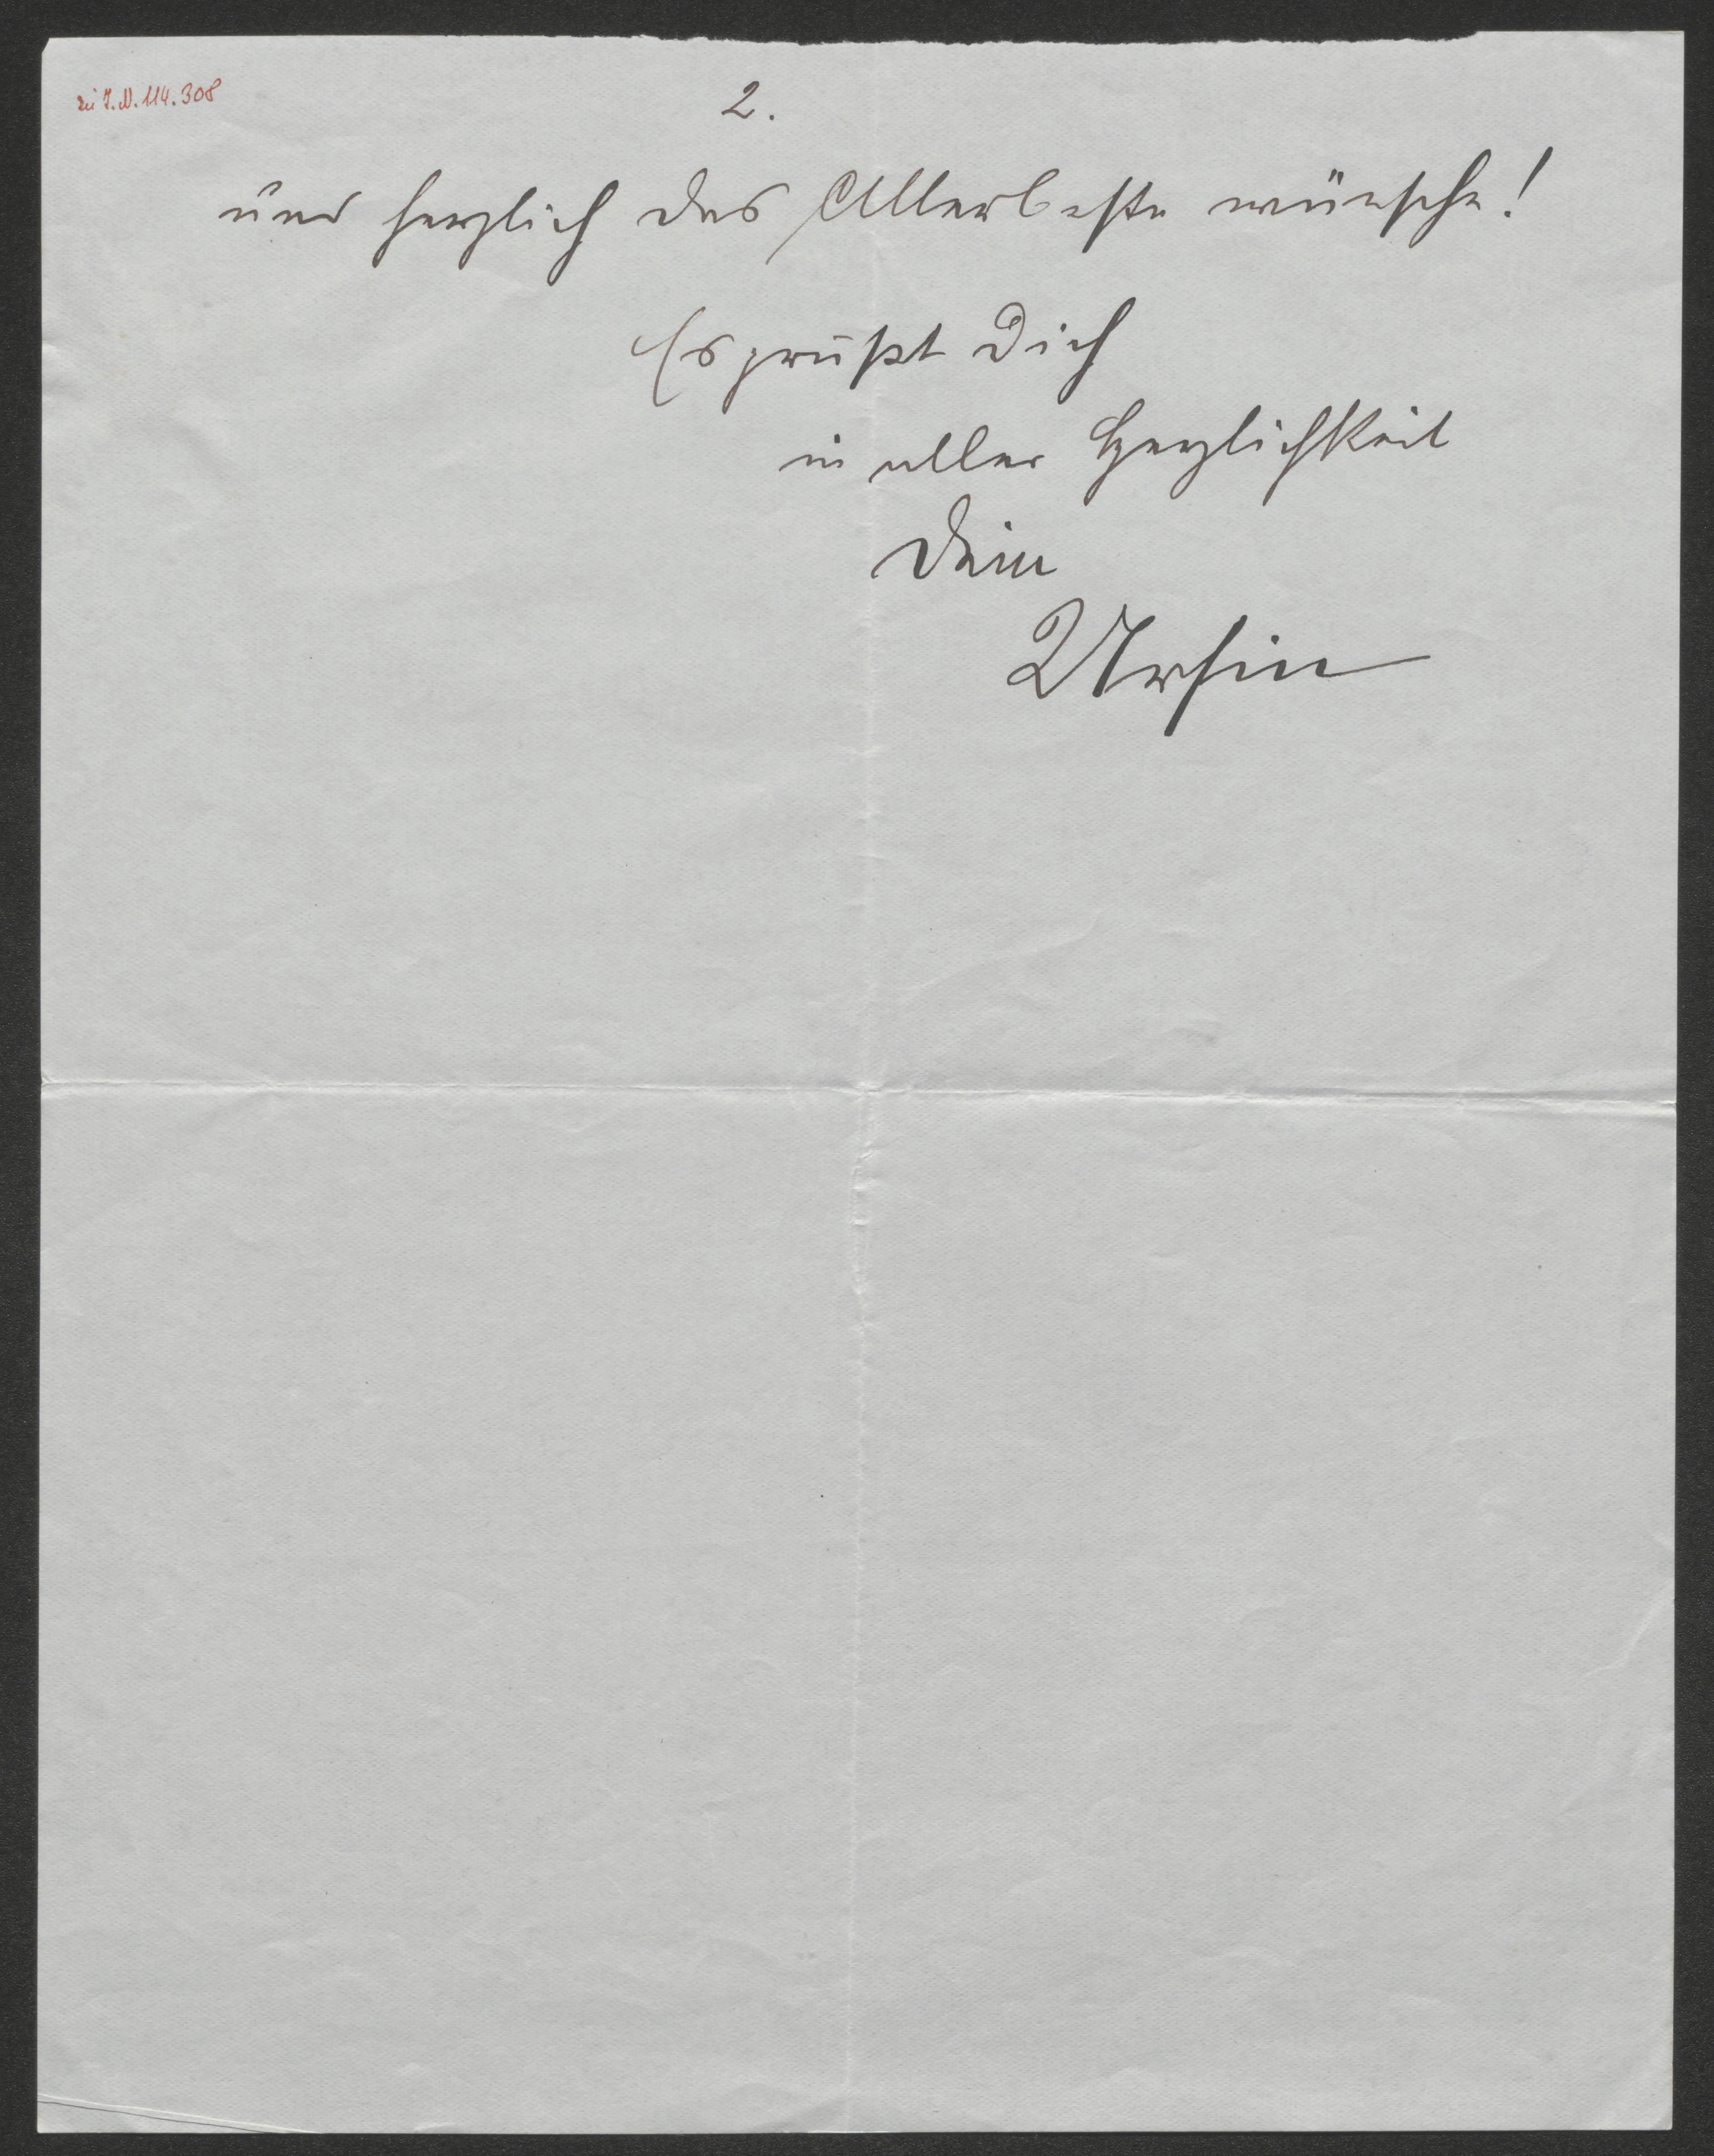 zu I.N. 114.308
2.
und herzlich das Allerbeste wünsche!
Es grüßt Dich
in aller Herzlichkeit
Dein
Ursin